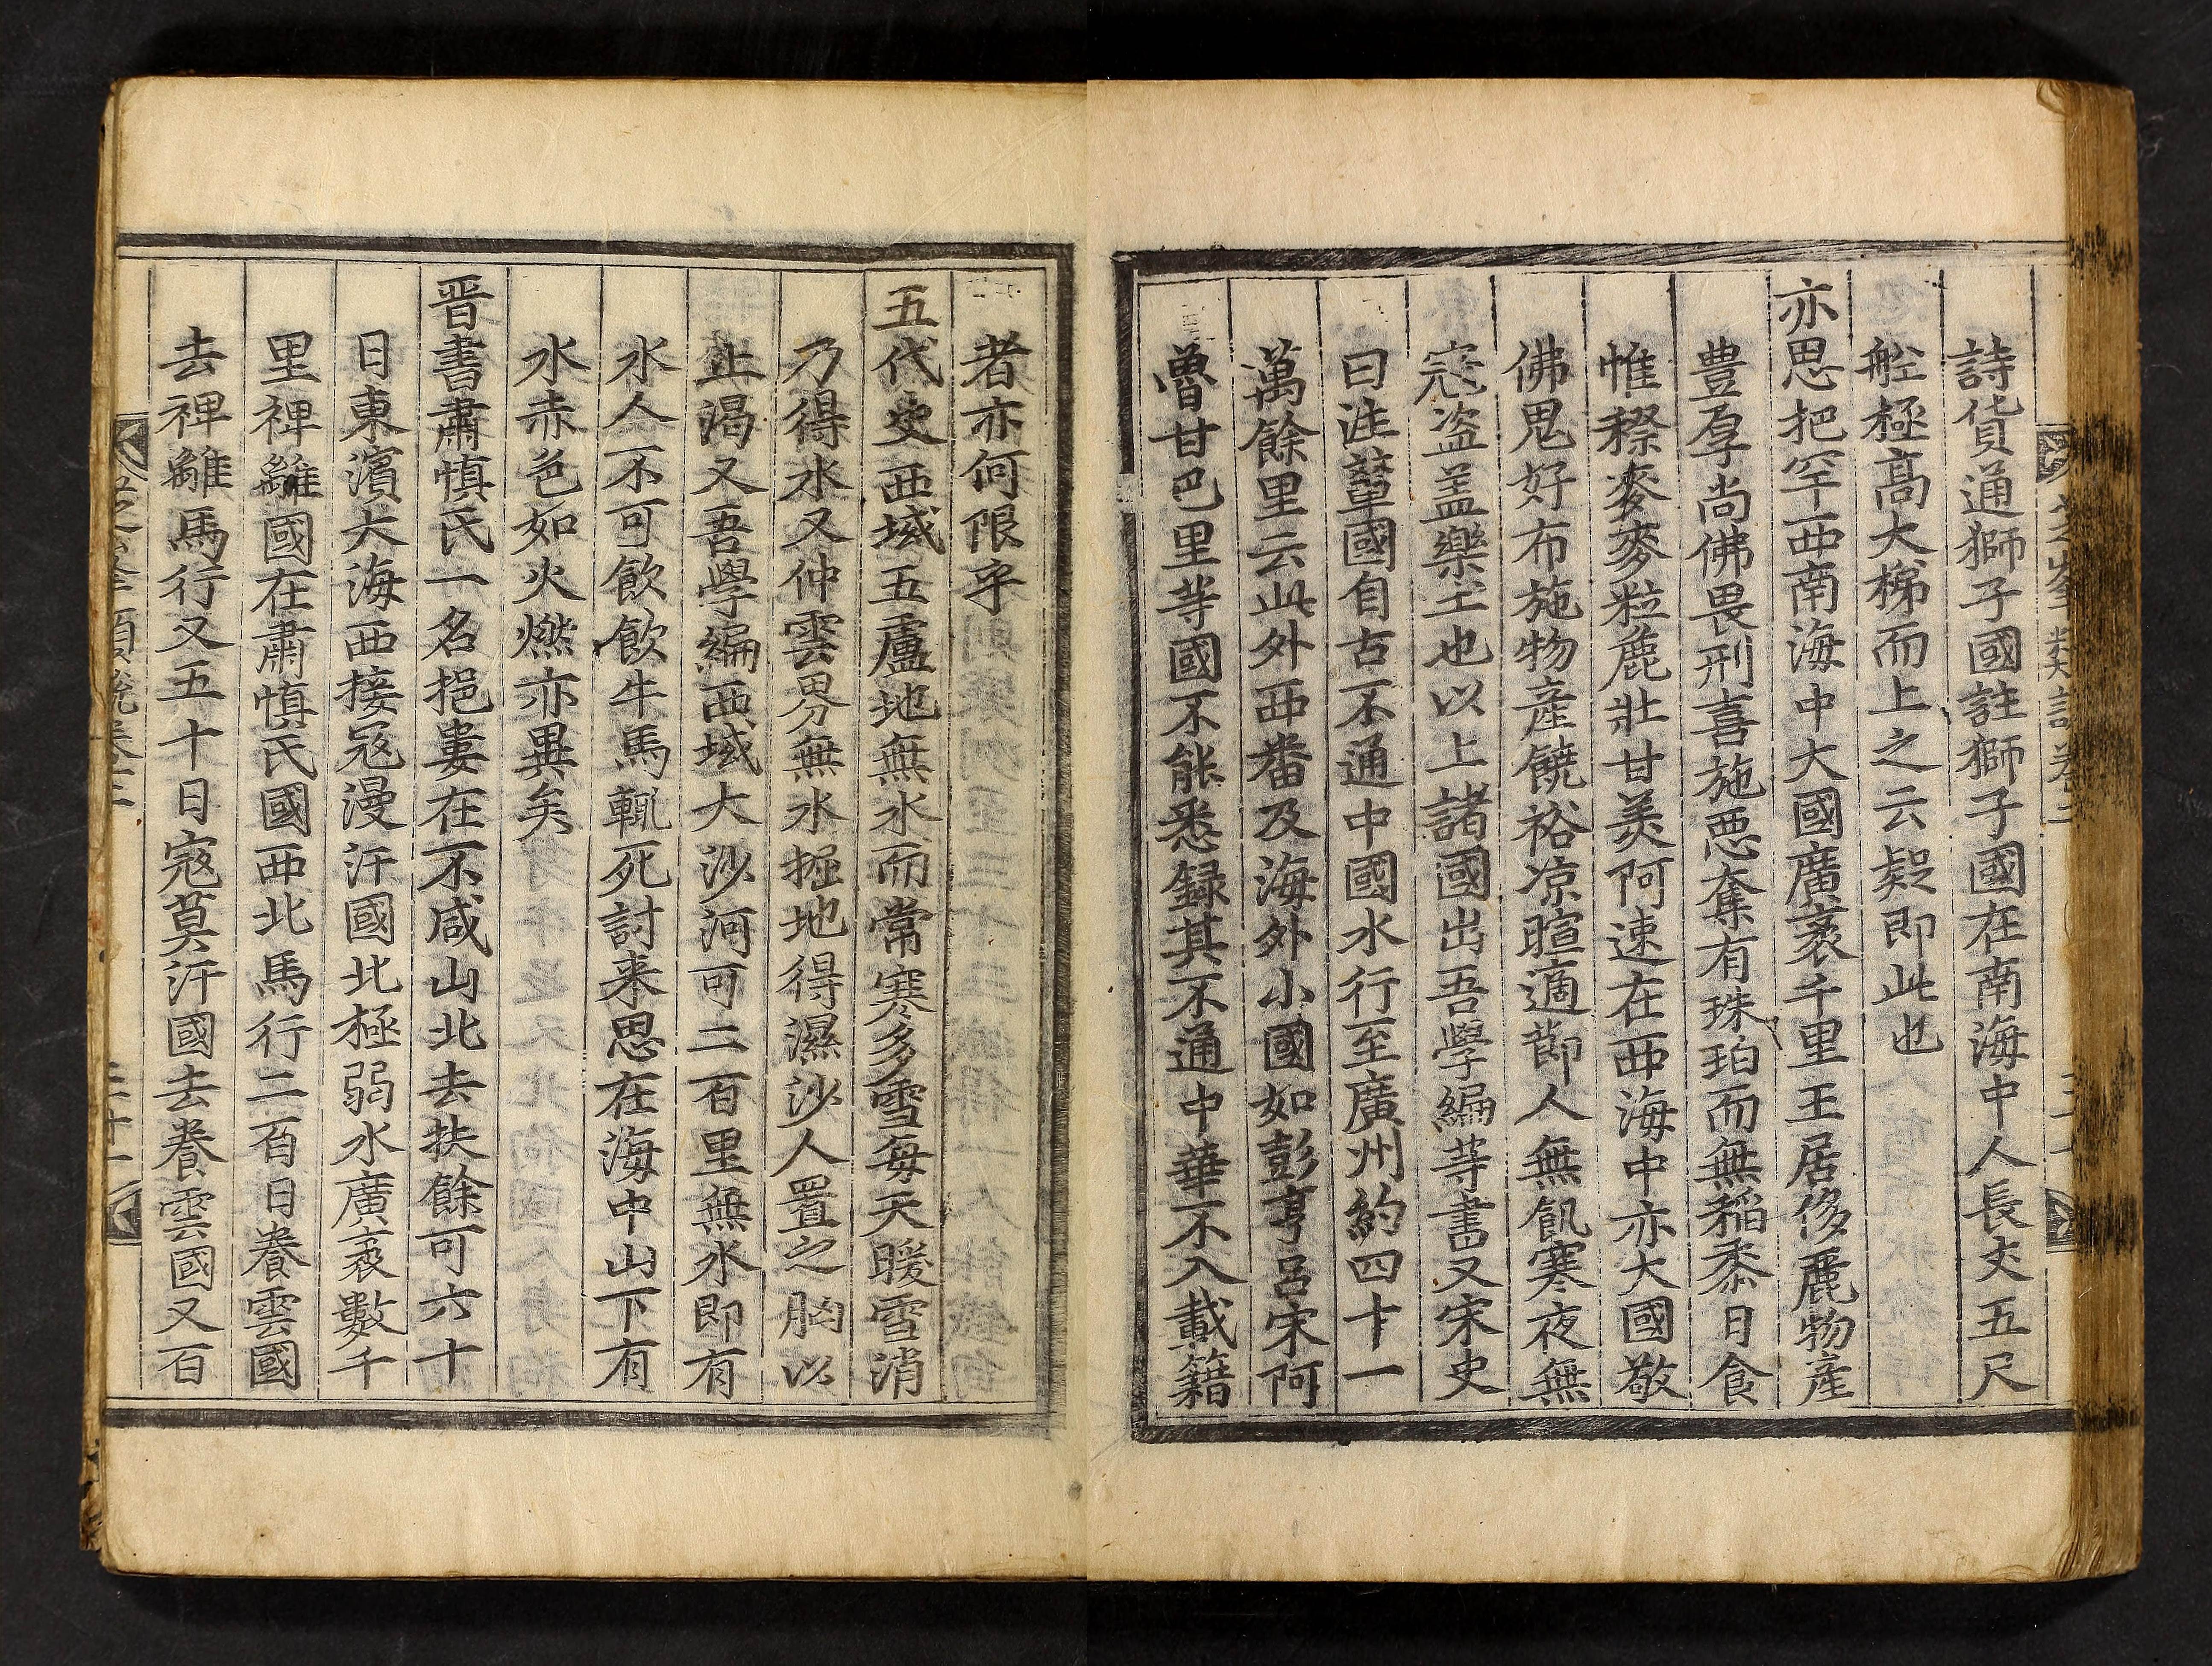 詩貨通獅子國註獅子國在南海中人長丈五尺
舡極高大梯而上之云疑即此也
亦思把罕西南海中大國廣袤千里王居侈麗物産
豊厚尚佛畏刑喜施惡奪有珠珀而無稻黍日食
惟稬麥麥粒麁壯甘美阿速在西海中亦大國敬
佛鬼好布施物産饒裕凉暄適節人無飢寒夜無
寇盗盖樂土也以上諸國出吾學編等書又宋史
曰注輦國自古不通中國水行至廣州約四十一
萬餘里云此外西番及海外小國如彭亨呂宋阿
魯甘巴里等國不能悉録其不通中華不入載籍
者亦何限乎
五代史西域五盧地無水而常寒多雪每天暖雪消
乃得水又仲雲界無水掘地得濕沙人置之胸以
止渴又吾學編西域大沙河可二百里無水即有
水人不可飲飲牛馬輒死討来思在海中山下有
水赤色如火燃亦異矣
晋書肅慎氏一名挹婁在不咸山北去扶餘可六十
日東濱大海西接寇漫汗國北極弱水廣袤數千
里裨離國在肅慎氏國西北馬行二百日養雲國
去裨離馬行又五十日寇莫汗國去養雲國又百
芝峯類說卷二